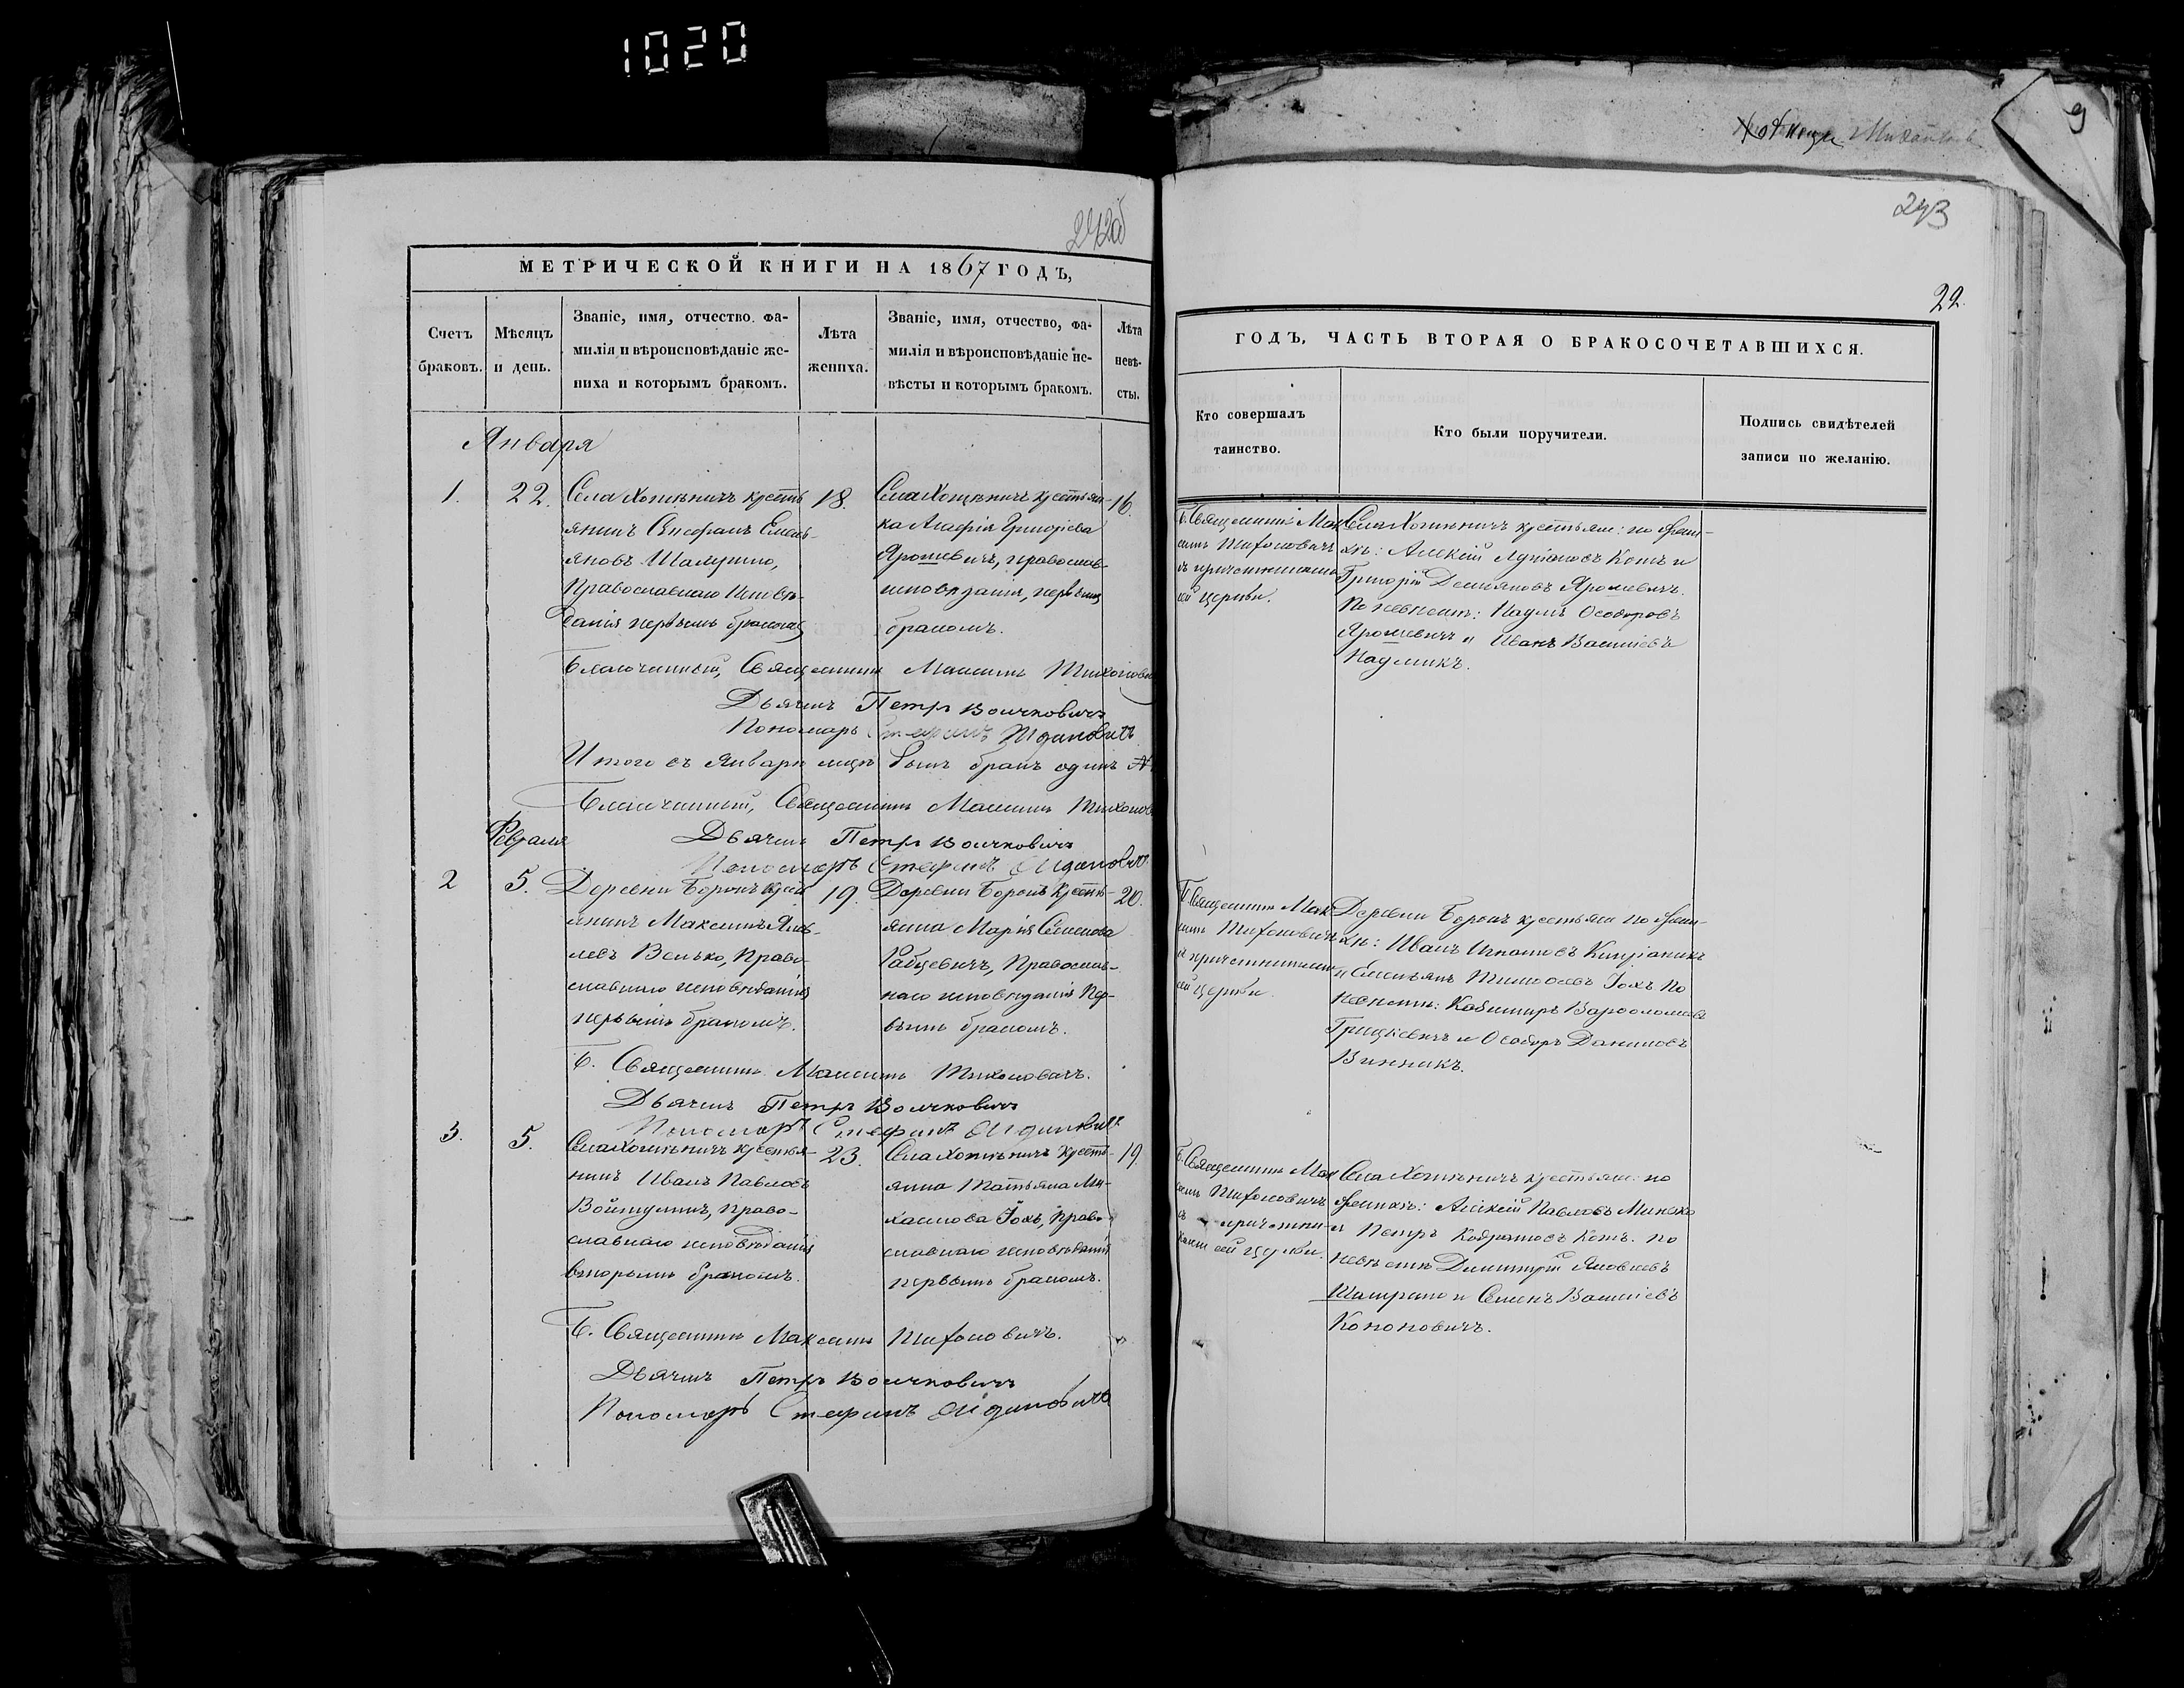 1020
242об
МЕТРИЧЕСКОЙ КНИГИ НА 1867 ГОДЪ,
Счетъ браковъ.
Мѣсяцъ и день.
Званіе, имя, отчество, фа-
милія и вѣроисповѣданіе же-
ниха и которымъ бракомъ.
Лѣта жениха.
Званіе, имя, отчество, фа-
милія и вѣроисповѣданіе не-
вѣсты и которымъ бракомъ.
Лѣта
невѣ-
сты.
Января
1.
22.
Села Хотѣничъ кресть
янинъ Емель-
яновъ
Православнаго Исповѣ-
данія первымъ бракомъ
18.
Села Хотѣничъ крестьян-
ка Агафія Григорьева
Ярошевичъ, православ.
исповѣданія, первымъ
бракомъ.
16.
Благочинный, Священникъ Максимъ Тихоновичъ
Дьячекъ Петръ Воичковичъ
Пономарь Стефанъ
Итого въ Январѣ мцѣ былъ бракъ одинъ
Благочинный, Священникъ Максимъ Тихонов
Дьячекъ Петръ Воичковичъ
Пономарь Стефанъ
Февраля
2
5.
Деревни Боронъ крест
янинъ Максимъ Яков-
левъ Велько, Право-
славнаго исповѣданія
первымъ бракомъ.
19.
Деревни Боронъ кресть-
янка Марія Семенова
Рабцевичъ, Православ-
наго исповѣданія Пер-
вымъ бракомъ.
20.
Б. Священникъ Максимъ Тихоновичъ.
Дьячекъ Петръ Воичковичъ
Пономарь Стефанъ
3.
5.
Села Хотѣничъ крестья-
нинъ Иванъ Павловъ
Войтулич, право-
славнаго исповѣданія
вторымъ бракомъ.
23.
Села Хотѣничъ кресть-
янка Татьяна Ми-
хайлова Гохъ, право-
славнаго исповѣданія
первымъ бракомъ.
19.
Б. Священникъ Максимъ Тихоновичъ.
Дьячекъ Петръ Воичковичъ
Пономарь Стефанъ
9
243
22.
ГОДЪ, ЧАСТЬ ВТОРАЯ О БРАКОСОЧЕТАВШИХСЯ.
Кто совершалъ
таинство.
Кто были поручители.
Подпись свидѣтелей
записи по желанію.
Б. Священникъ Мак
симъ Тихоновичъ
съ причетниками
сей церкви.
Села Хотѣничъ крестьяне: по жени-
хѣ: Алексій Лукіановъ Котъ и
Григорій Демьяновъ Ярошевичъ.
По невѣстѣ: Наумъ Ѳеодоровъ
Ярошевичъ и Иванъ Васильевъ
Наумикъ.
Б. Священникъ Мак
симъ Тихоновичъ
съ причетниками
сей церкви.
Деревни Боронъ крестьяне по жени-
хѣ: Иванъ Игнатовъ Кипріаникъ
и Емельянъ Тимоѳеевъ Гохъ. По
невѣстѣ: Казимиръ Варѳоломеевъ
Грицкевичъ и Ѳеодоръ Даниловъ
Винникъ.
Б. Священникъ Мак
симъ Тихоновичъ
съ причетни-
ками сей церкви.
Села Хотѣничъ крестьяне: по
женихѣ: Алексій Павловъ Минько
и Петръ Кодратовъ Котъ. по
невѣстѣ Димитрій Яковлевъ
и Семенъ Васильевъ
Кононовичъ.